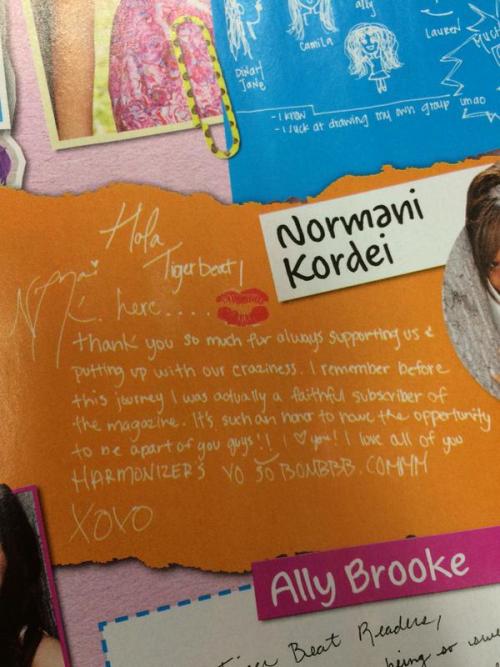 ally
Camila
Lauren
Dinah
Jane
- I know
- I suck at drawing my own group lmao
Normani
Kordei
Hola
Tiger beat!
here.....
thank you so much for always supporting us &
putting up with our craziness. I remember before
this journey I was actually a faithful subscriber of
the magazine. It's such an honor to have the opportunity
to be apart of you guys!! I ♡ you! I love all of you
HARMONIZERS YO SO BOMBBB.COMMM
XOXO
Ally Brooke
Beat Readers,
being so